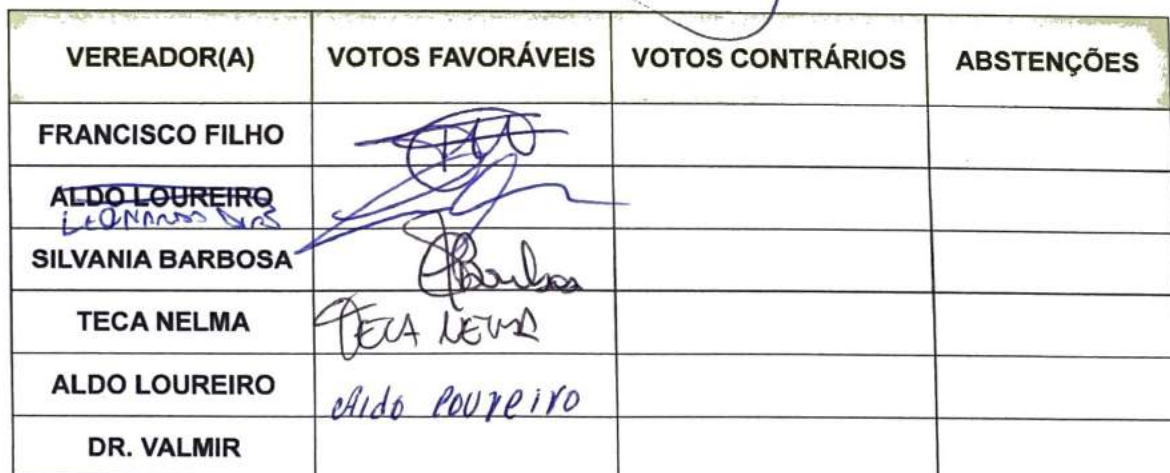 VEREADOR(A) VOTOS FAVORÁVEIS VOTOS CONTRÁRIOS ABSTENÇÕES
FRANCISCO FILHO
ALDO LOUREIRO
LEONARDO DIAS
SILVANIA BARBOSA Barbosa
TECA NELMA TECA NELMA
ALDO LOUREIRO Aldo Loureiro
DR. VALMIR